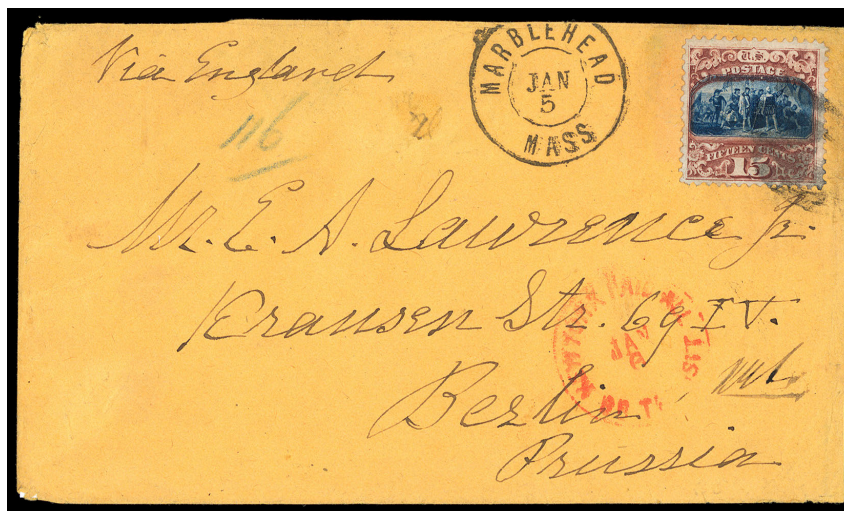 Via England
MARBLEHEAD
JAN
5
MASS
U.S.
POSTAGE
FIFTEEN CENTS
15
116
Mr. E. A. Lawrence Jr.
Krausen Str. 69 IV.
JAN
Berlin
Prussia